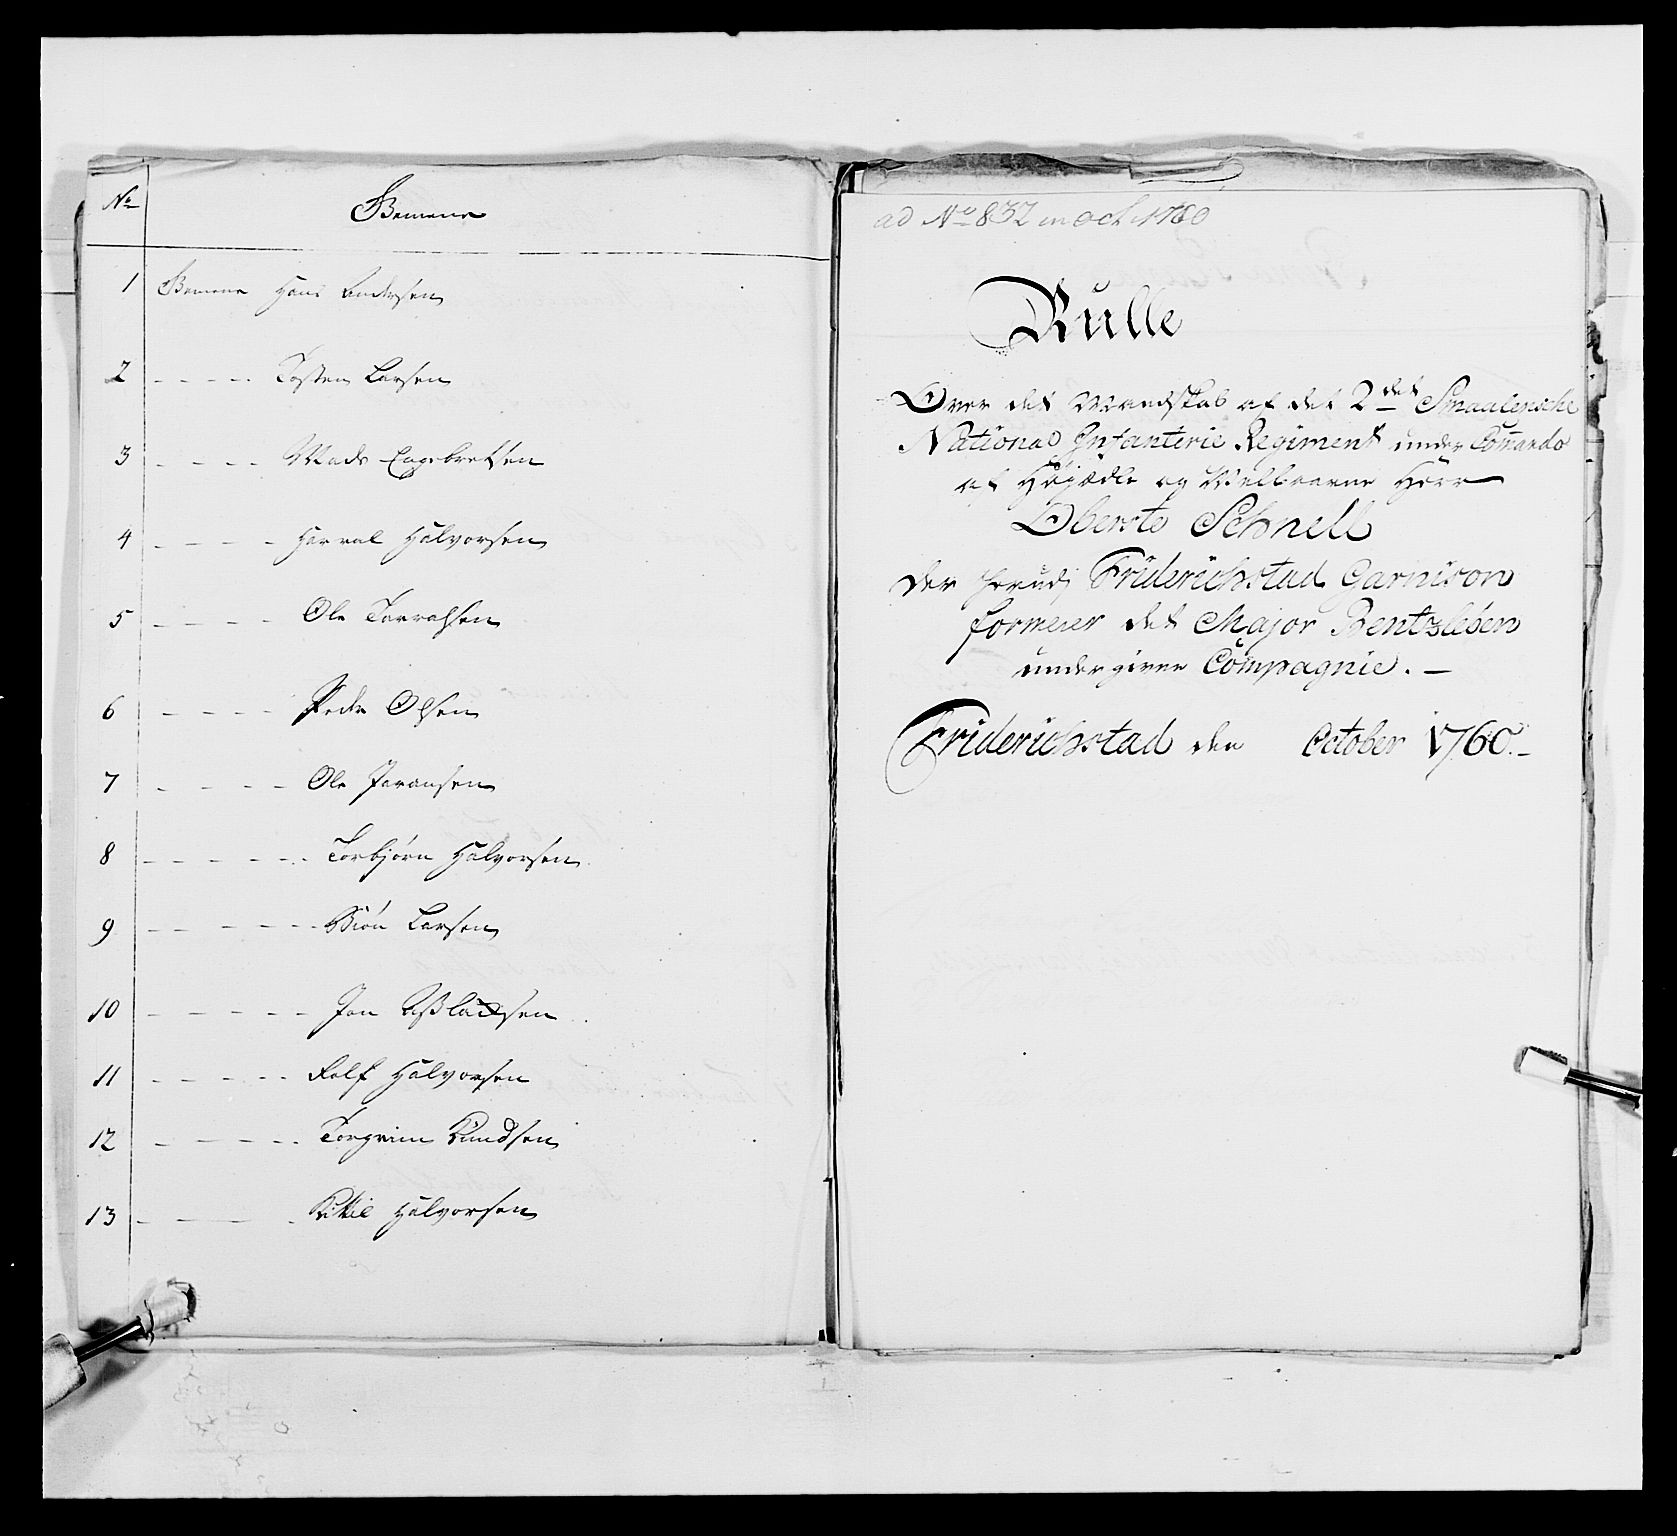 No
Gemene
1 Gemene Hans Andersen
2 - - - - Tosten Larsen
3 - - - - Mads Engebretsen
4 - - - - Harral Halvorsen
5 - - - - Ole Torralsen
6 - - - - Peder Olsen
7 - - - - Ole Joransen
8 - - - - - - Torbjørn Halvorsen
9 - - - - - - Biøn Larsen
10 - - - - - - Jon Aslacksen
11 - - - - - Rolf Halvorsen
12 - - - - - Torgrim Knudsen
13 - - - - Kittil Halvorsen
ad No 832 in Oct 1760
Rulle
Over det Mandskab af det 2det Smaalensche
National Infanterie Regiment under Comando
af Høyædle og Welbaarne Herr
Oberste Schnell
der forud i Friderichstad Garnison
formerer det Major Bentzleben
undergivne Compagnie. -
Friderichstad den October 1760. -